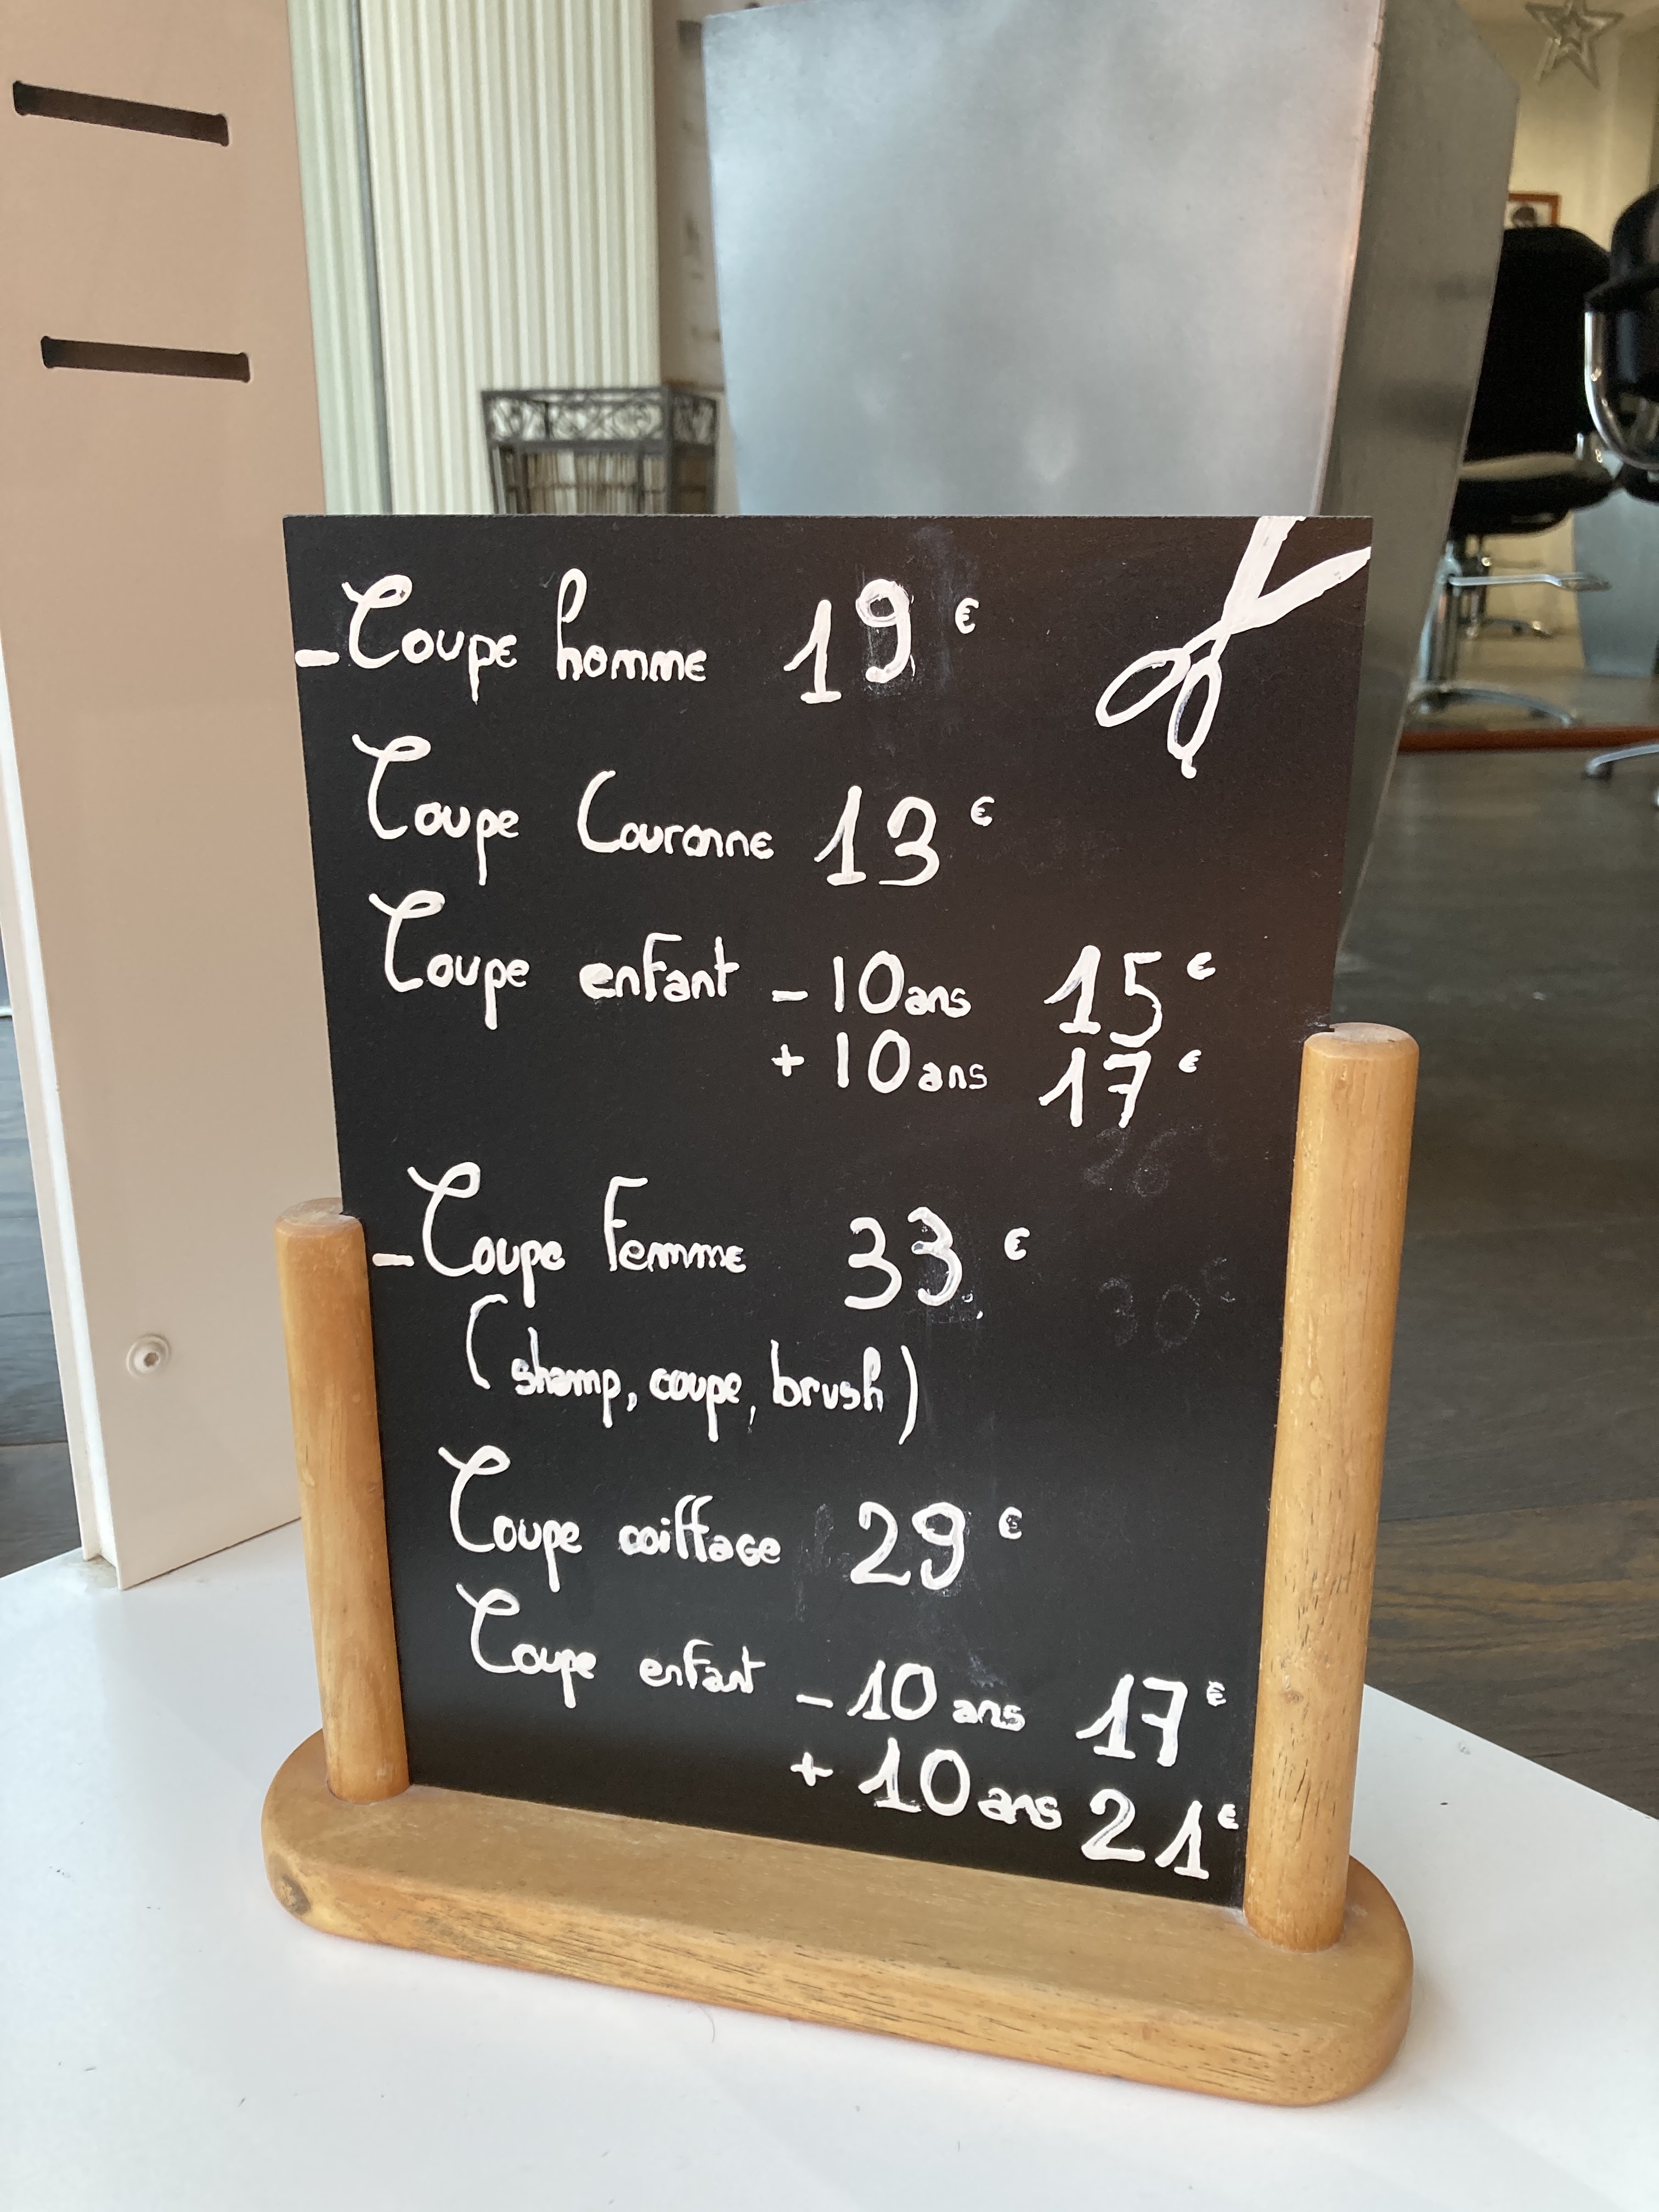 -Coupe homme 19€
Coupe Couronne 13€
Coupe enfant -10ans 15€
+10ans 17€
26€
-Coupe Femme 33€
30€
(shamp, coupe, brush)
Coupe coiffage 29€
Coupe enfant -10 ans 17€
+10ans 21€